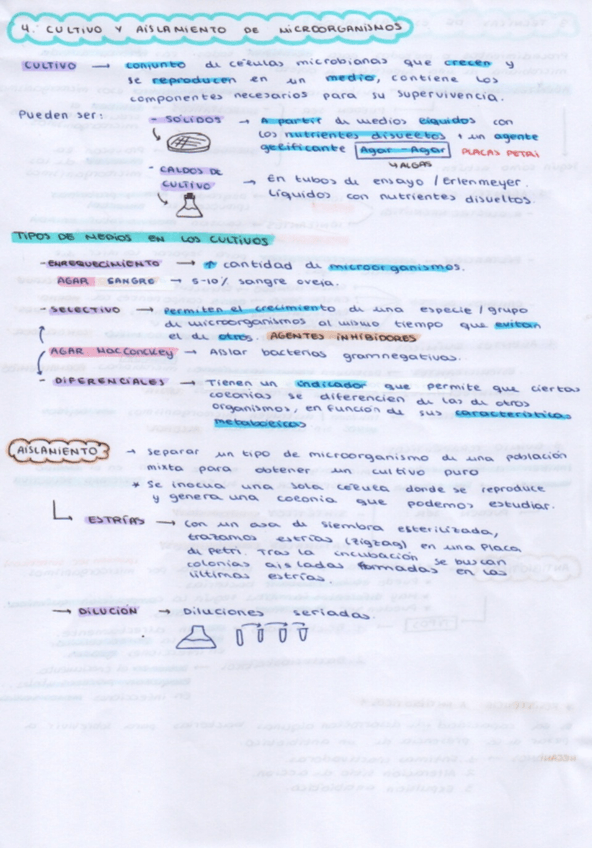 4. CULTIVO Y AISLAMIENTO DE MICROORGANISMOS
CULTIVO → conjunto de células microbianas que crecen y
se reproducen en un medio, contiene los
componentes necesarios para su supervivencia.
Pueden ser:
- SÓLIDOS → A partir de medios líquidos con
los nutrientes disueltos + un agente
gelificante Agar-Agar PLACAS PETRI
↳ ALGAS
- CALDOS DE
CULTIVO → En tubos de ensayo / Erlenmeyer.
Líquidos con nutrientes disueltos.
TIPOS DE MEDIOS EN LOS CULTIVOS
- ENRIQUECIMIENTO → ↑ cantidad de microorganismos.
AGAR SANGRE → 5-10% sangre oveja.
- SELECTIVO → Permiten el crecimiento de una especie / grupo
de microorganismos al mismo tiempo que evitan
el de otros. AGENTES INHIBIDORES
AGAR MACCONCKEY → Aislar bacterias gramnegativas.
- DIFERENCIALES → Tienen un indicador que permite que ciertas
colonias se diferencien de las de otros
organismos, en función de sus características
metabólicas
AISLAMIENTO → Separar un tipo de microorganismo de una población
mixta para obtener un cultivo puro
* Se inocula una sola célula donde se reproduce
y genera una colonia que podemos estudiar.
ESTRÍAS → Con un asa de siembra esterilizada,
trazamos estrías (zigzag) en una placa
de Petri. Tras la incubación se buscan
colonias aisladas formadas en las
últimas estrías.
→ DILUCIÓN → Diluciones seriadas.